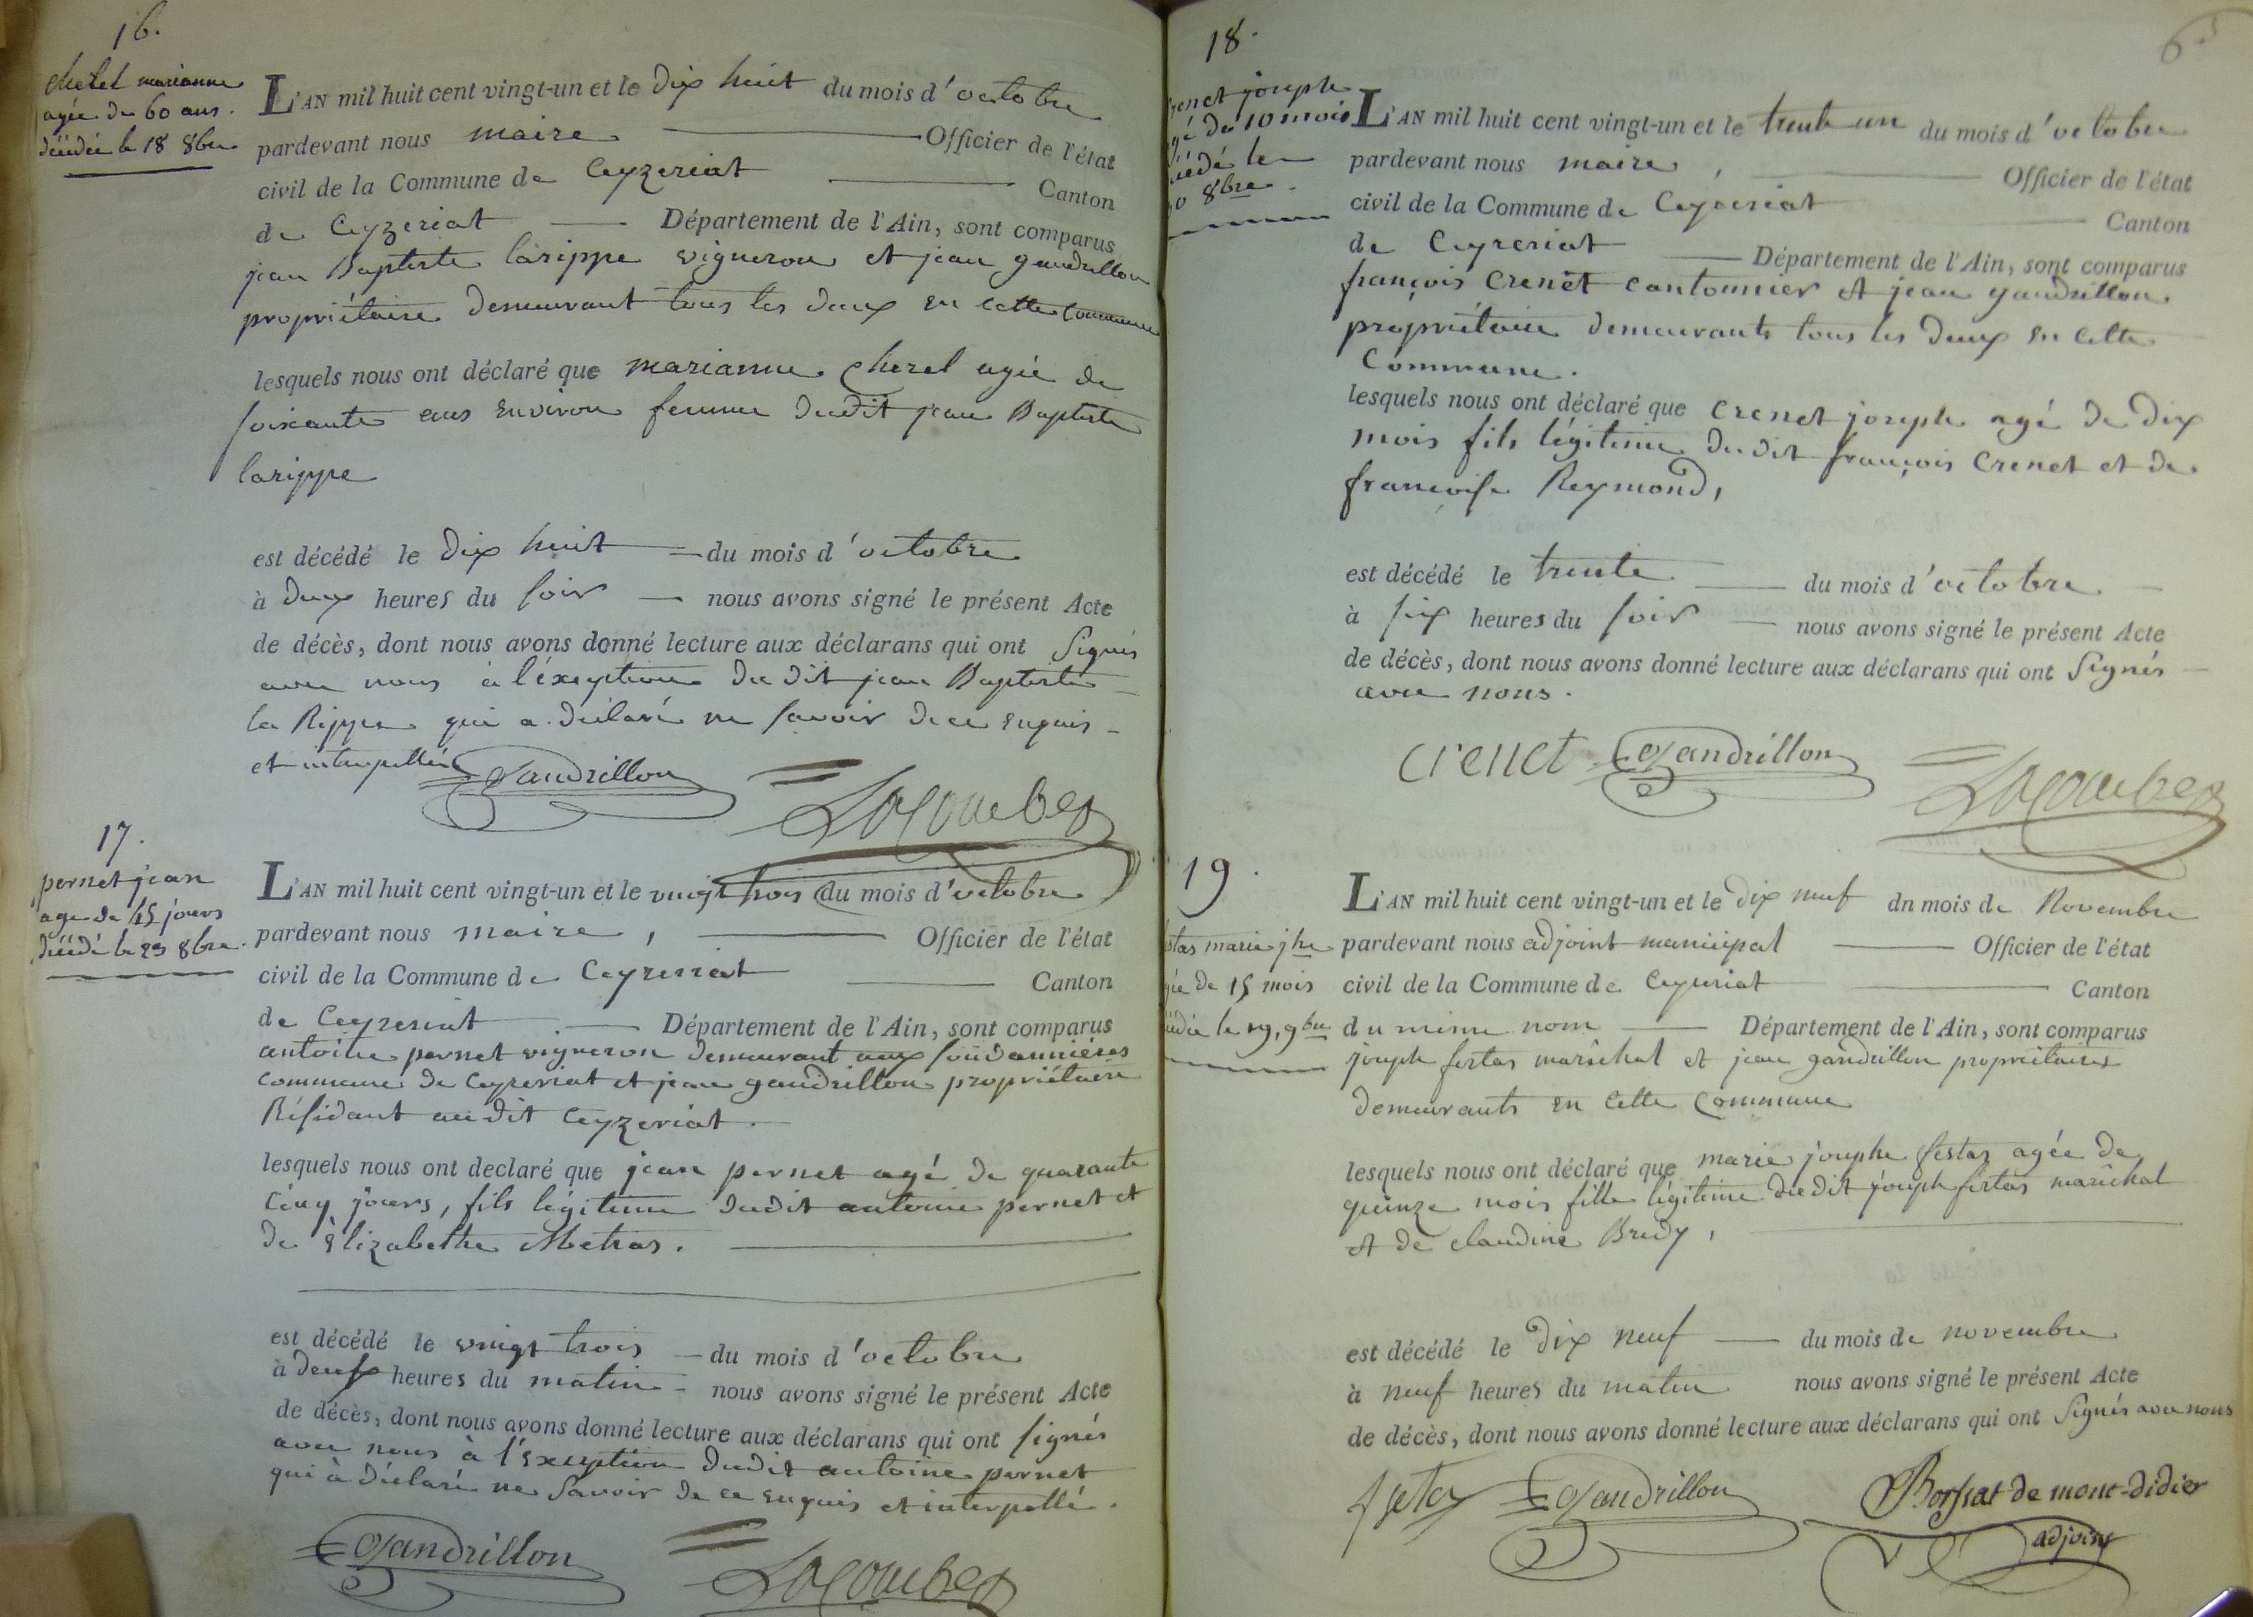 16.
cherel marianne
agée de 60 ans.
décédée le 18 8bre
L'AN mil huit cent vingt-un et le dix huit du mois d'octobre
pardevant nous maire Officier de l'état
civil de la Commune de Ceyzeriat Canton
de Ceyzeriat Département de l'Ain, sont comparus
jean Baptiste larippe vigneron et jean gandrillon
propriétaire demeurant tous les deux en cette commune
lesquels nous ont déclaré que marianne cherel agée de
soixante ans environ femme dudit jean Baptiste
larippe
est décédé le dix huit du mois d'octobre
à deux heures du soir nous avons signé le présent Acte
de décès, dont nous avons donné lecture aux déclarans qui ont signés
avec nous à l'éxeption du dit jean Baptiste
la Rippe qui a déclaré ne savoir de ce enquis
et interpellé
Gandrillon Lacombe
17.
pernet jean
age de 45 jours
décédé le 23 8bre.
L'AN mil huit cent vingt-un et le vingt trois du mois d'octobre
pardevant nous maire, Officier de l'état
civil de la Commune de Ceyzeriat Canton
de Ceyzeriat Département de l'Ain, sont comparus
antoine pernet vigneron demeurant aux soudannières
commune de Ceyzeriat et jean gandrillon propriétaire
Résidant au dit Ceyzeriat.
lesquels nous ont declaré que jean pernet agé de quarante
cinq jours, fils légitime dudit antoine pernet et
de Elizabethe Metras.
est décédé le vingt trois du mois d'octobre
à deux heures du matin nous avons signé le présent Acte
de décès, dont nous avons donné lecture aux déclarans qui ont signés
avec nous à l'exception dudit antoine pernet
qui à déclaré ne savoir de ce enquis et interpellé.
Gandrillon Lacombe
18.
65
crenet joseph
agé de 10 mois
décédé le
30 8bre.
L'AN mil huit cent vingt-un et le trente un du mois d'octobre
pardevant nous maire, Officier de l'état
civil de la Commune de Ceyzeriat Canton
de Ceyzeriat Département de l'Ain, sont comparus
françois Crenet cantonnier et jean gandrillon
propriétaire demeurants tous les deux en cette
Commune.
lesquels nous ont déclaré que Crenet joseph agé de dix
mois fils légitime du dit françois Crenet et de
françoise Reymond,
est décédé le trente du mois d'octobre
à six heures du soir nous avons signé le présent Acte
de décès, dont nous avons donné lecture aux déclarans qui ont signés
avec nous.
crenet Gandrillon Lacombe
19.
festas marie jhe
agée de 15 mois
décédée le 19, 9bre
L'AN mil huit cent vingt-un et le dix neuf dn mois de Novembre
pardevant nous adjoint municipal Officier de l'état
civil de la Commune de Ceyzeriat Canton
du même nom Département de l'Ain, sont comparus
joseph festas maréchal et jean gandrillon propriétaires
demeurants en cette commune
lesquels nous ont déclaré que marie josephe festas agée de
quinze mois fille légitime du dit joseph festas maréchal
et de claudine Bredy,
est décédé le dix neuf du mois de novembre
à neuf heures du matin nous avons signé le présent Acte
de décès, dont nous avons donné lecture aux déclarans qui ont signés avec nous
Gandrillon Borssat de mont-didier
adjoint